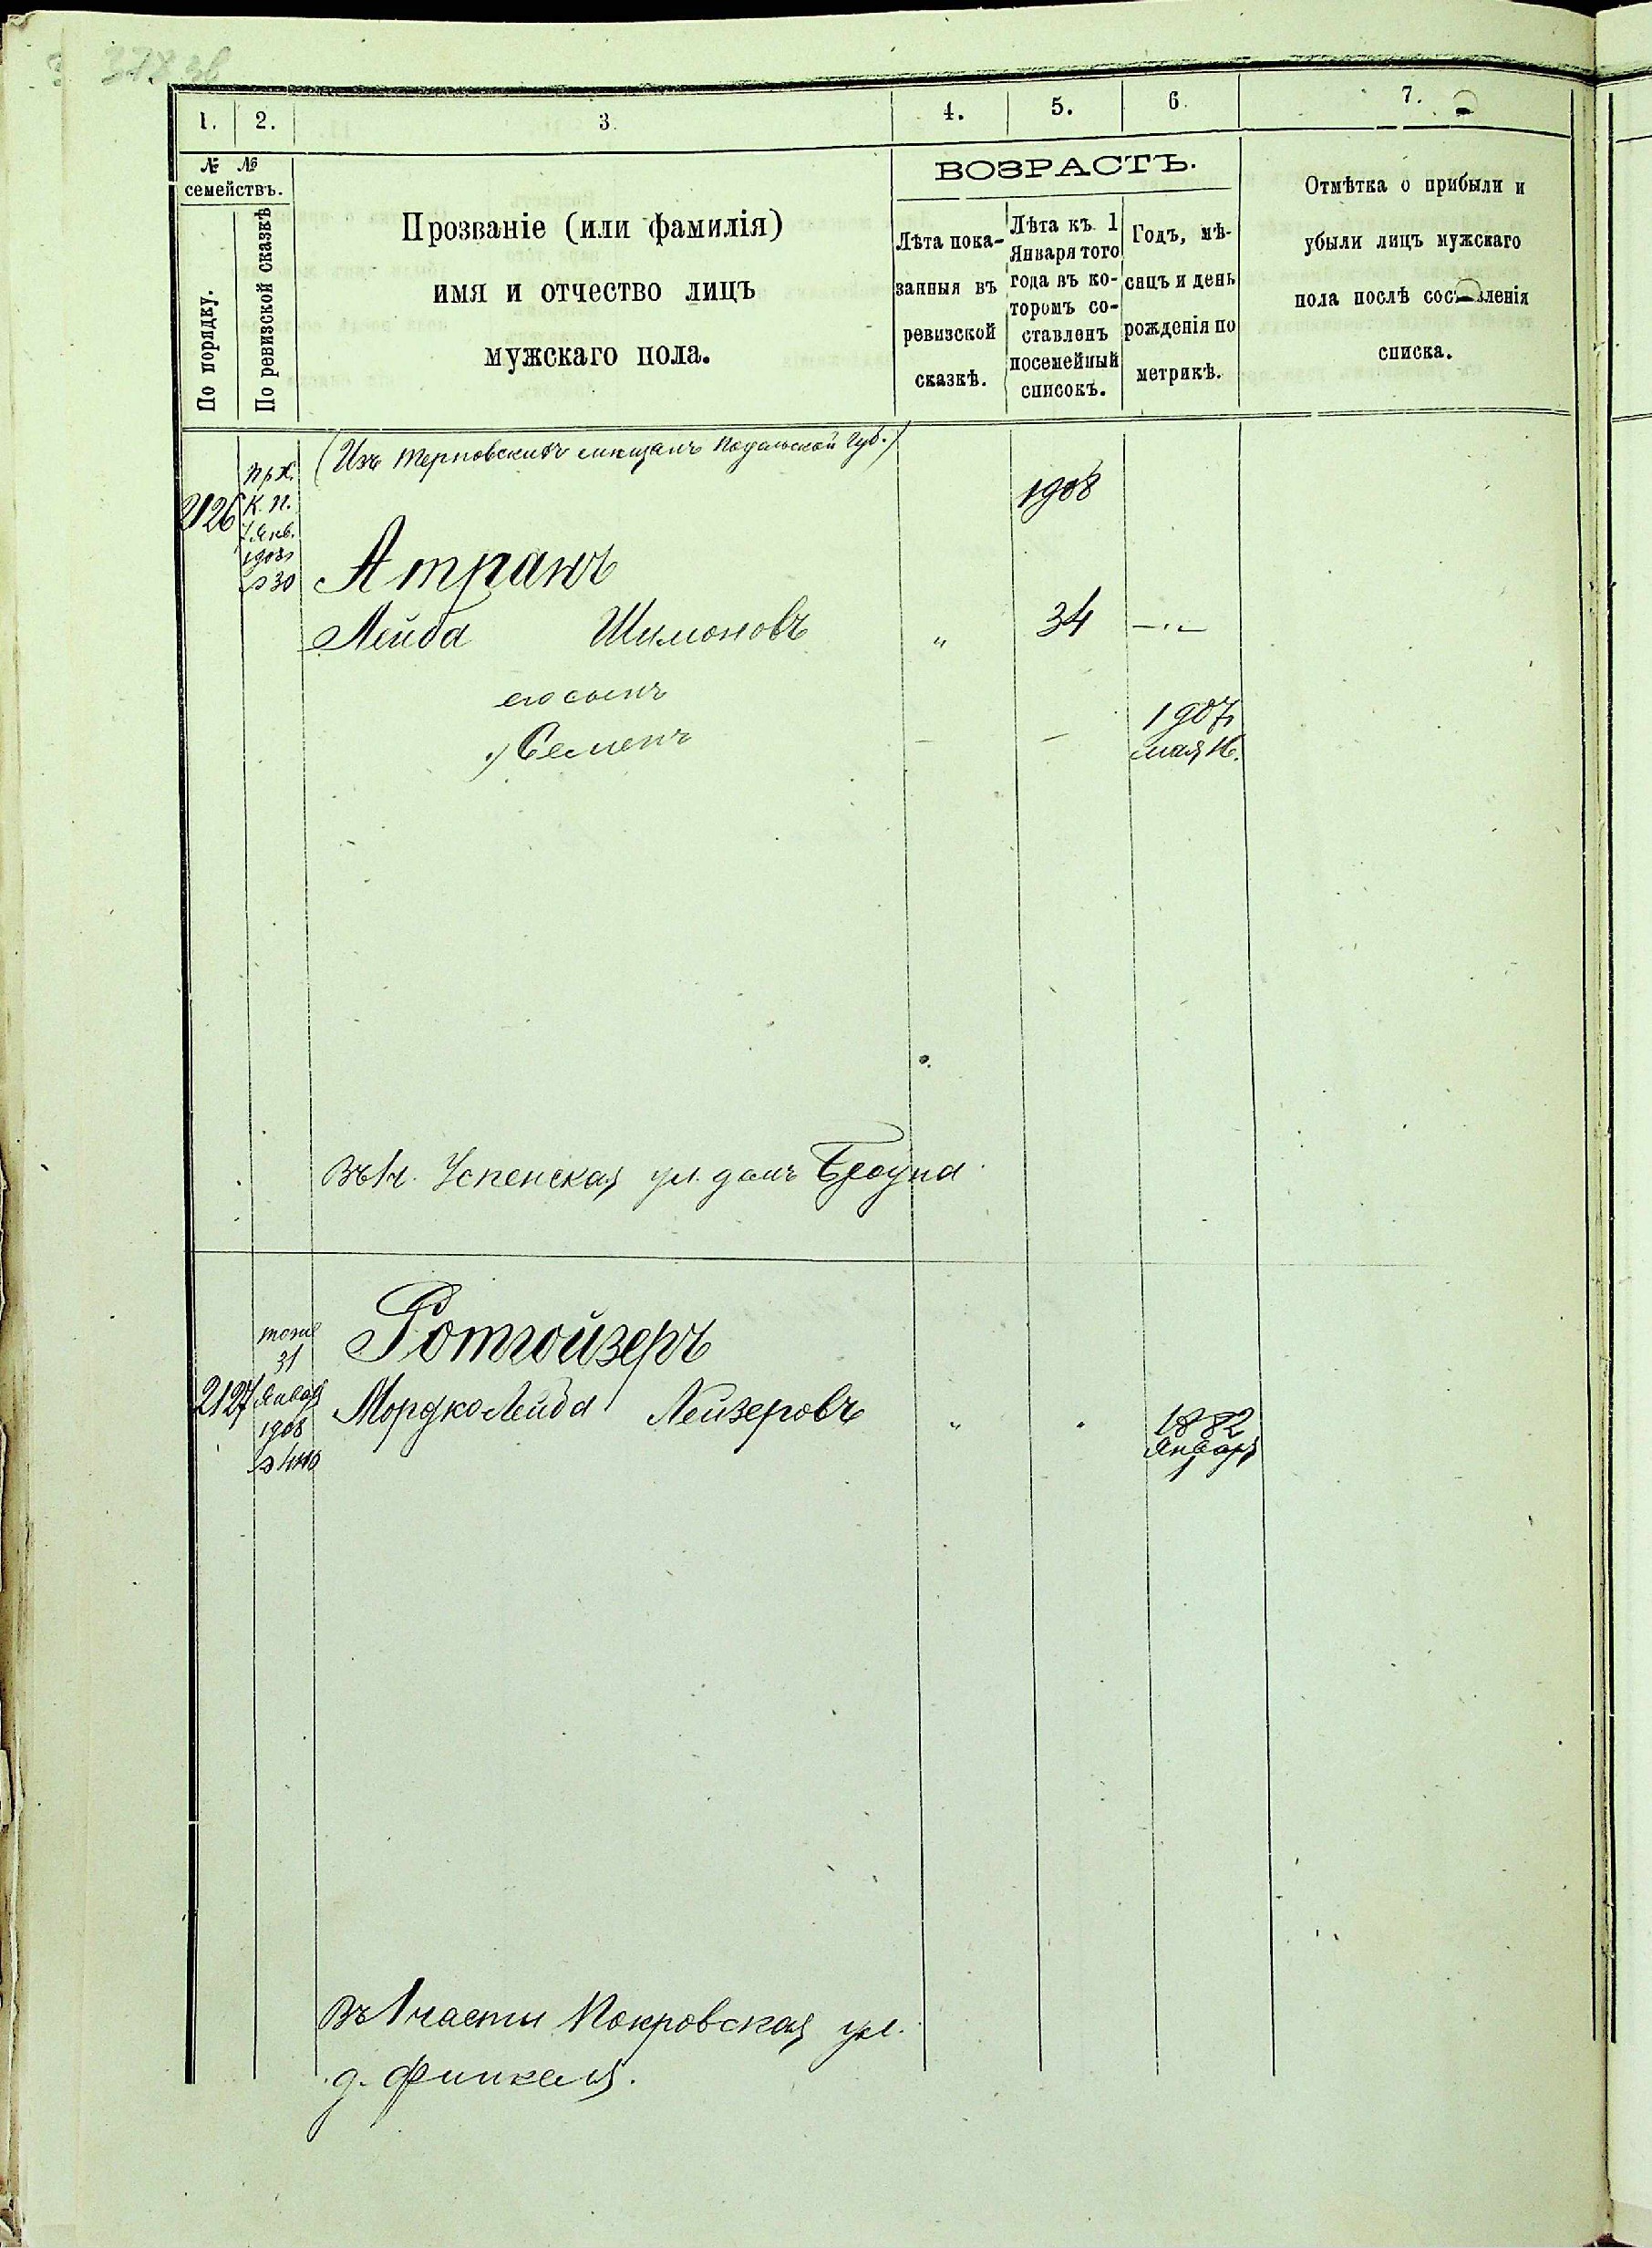 1. 2. 3. 4. 5. 6. 7.
№ № семействъ.
По порядку.
По ревизской сказкѣ
Прозваніе (или фамилія)
имя и отчество лицъ
мужскаго пола.
ВОЗРАСТЪ.
Лѣта пока-
занныя въ
ревизской
сказкѣ.
Лѣта къ 1
Января того
года въ ко-
торомъ со-
ставленъ
посемейный
списокъ.
Годъ, мѣ-
сяцъ и день
рожденія по
метрикѣ.
Отмѣтка о прибыли и
убыли лицъ мужскаго
пола послѣ составленія
списка.
(Изъ Терновскихъ мѣщанъ Подольской Губ.)
2126
К. П.
Янв.
1908
№ 30
1908
Атранъ
Лейба Шимоновъ " 34 —"—
его сынъ
Семенъ — — 1907
мая 16.
Въ 1 ч. Успенская ул. домъ Брауна
тоже
31
Января
1908
2127
Ротгойзеръ
Мордко Лейба Лейзеровъ " " 1882
Января
Въ 1 части Покровская ул.
д. Финкеля.